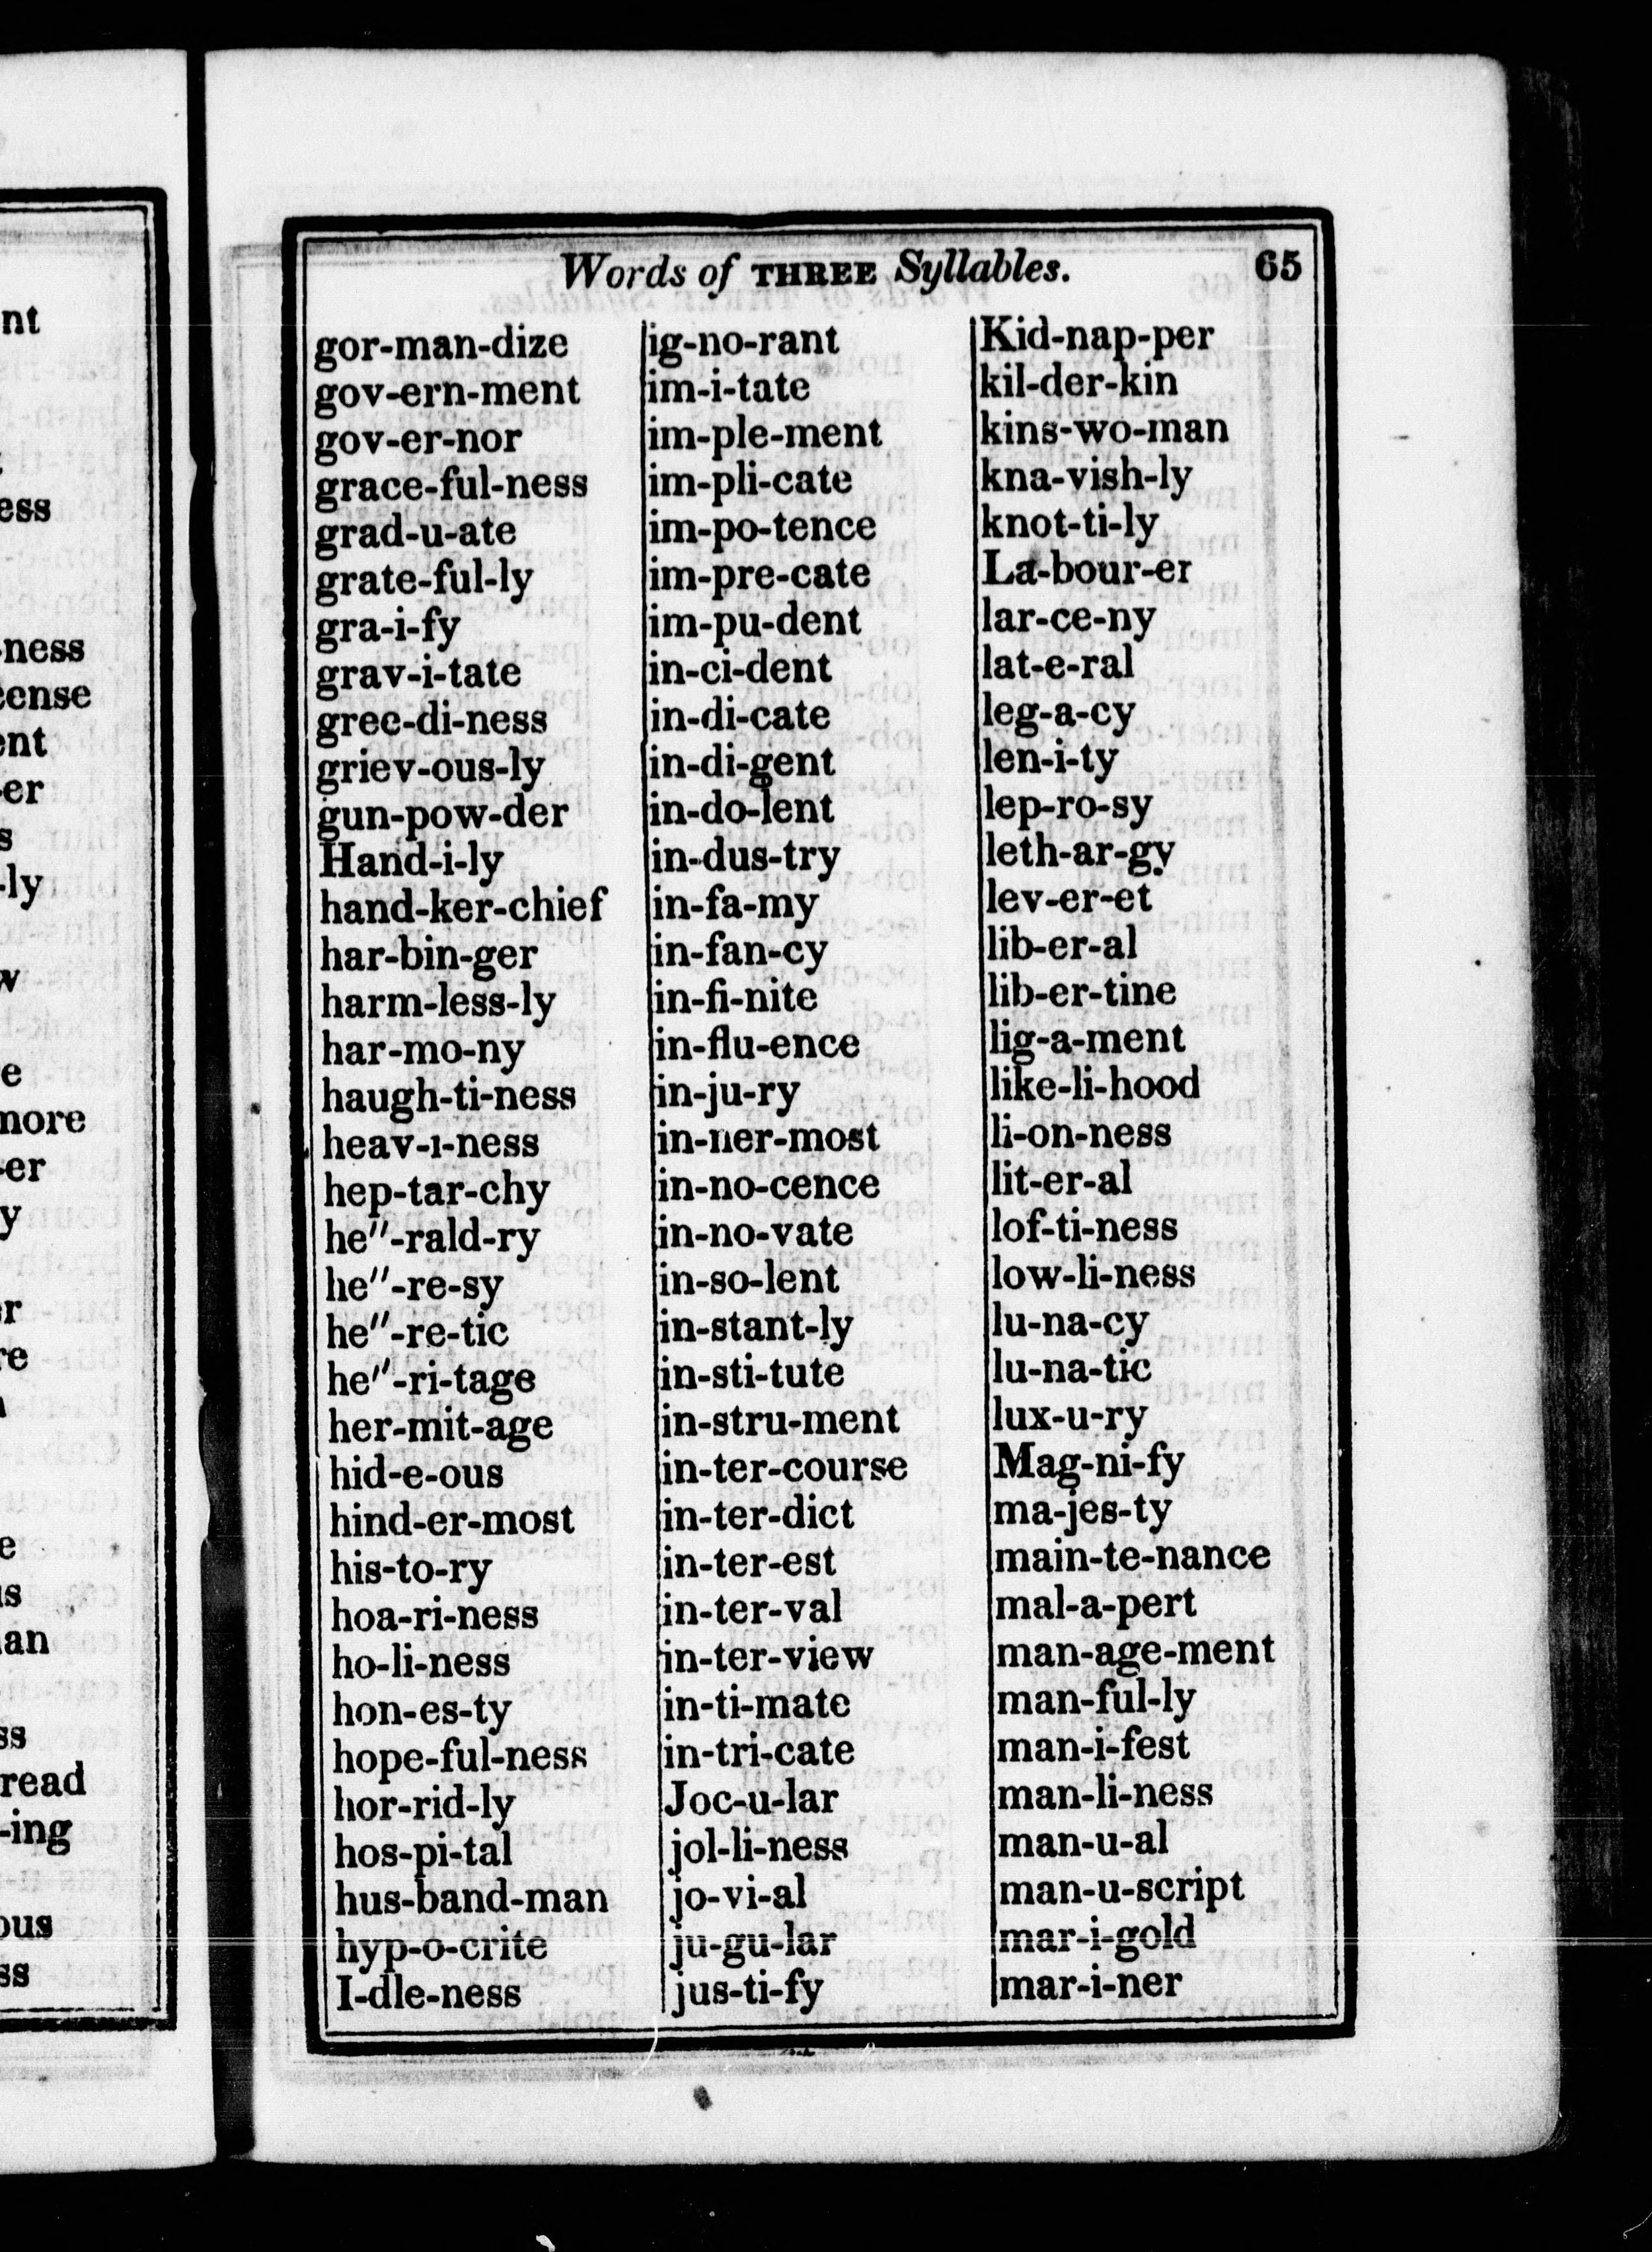 Words of THREE Syllables. 65
gor-man-dize
gov-ern-ment
gov-er-nor
grace-ful-ness
grad-u-ate
grate-ful-ly
gra-i-fy
grav-i-tate
gree-di-ness
griev-ous-ly
gun-pow-der
Hand-i-ly
hand-ker-chief
har-bin-ger
harm-less-ly
har-mo-ny
haugh-ti-ness
heav-i-ness
hep-tar-chy
he"-rald-ry
he"-re-sy
he"-re-tic
he"-ri-tage
her-mit-age
hid-e-ous
hind-er-most
his-to-ry
hoa-ri-ness
ho-li-ness
hon-es-ty
hope-ful-ness
hor-rid-ly
hos-pi-tal
hus-band-man
hyp-o-crite
I-dle-ness
ig-no-rant
im-i-tate
im-ple-ment
im-pli-cate
im-po-tence
im-pre-cate
im-pu-dent
in-ci-dent
in-di-cate
in-di-gent
in-do-lent
in-dus-try
in-fa-my
in-fan-cy
in-fi-nite
in-flu-ence
in-ju-ry
in-ner-most
in-no-cence
in-no-vate
in-so-lent
in-stant-ly
in-sti-tute
in-stru-ment
in-ter-course
in-ter-dict
in-ter-est
in-ter-val
in-ter-view
in-ti-mate
in-tri-cate
Joc-u-lar
jol-li-ness
jo-vi-al
ju-gu-lar
jus-ti-fy
Kid-nap-per
kil-der-kin
kins-wo-man
kna-vish-ly
knot-ti-ly
La-bour-er
lar-ce-ny
lat-e-ral
leg-a-cy
len-i-ty
lep-ro-sy
leth-ar-gy
lev-er-et
lib-er-al
lib-er-tine
lig-a-ment
like-li-hood
li-on-ness
lit-er-al
lof-ti-ness
low-li-ness
lu-na-cy
lu-na-tic
lux-u-ry
Mag-ni-fy
ma-jes-ty
main-te-nance
mal-a-pert
man-age-ment
man-ful-ly
man-i-fest
man-li-ness
man-u-al
man-u-script
mar-i-gold
mar-i-ner